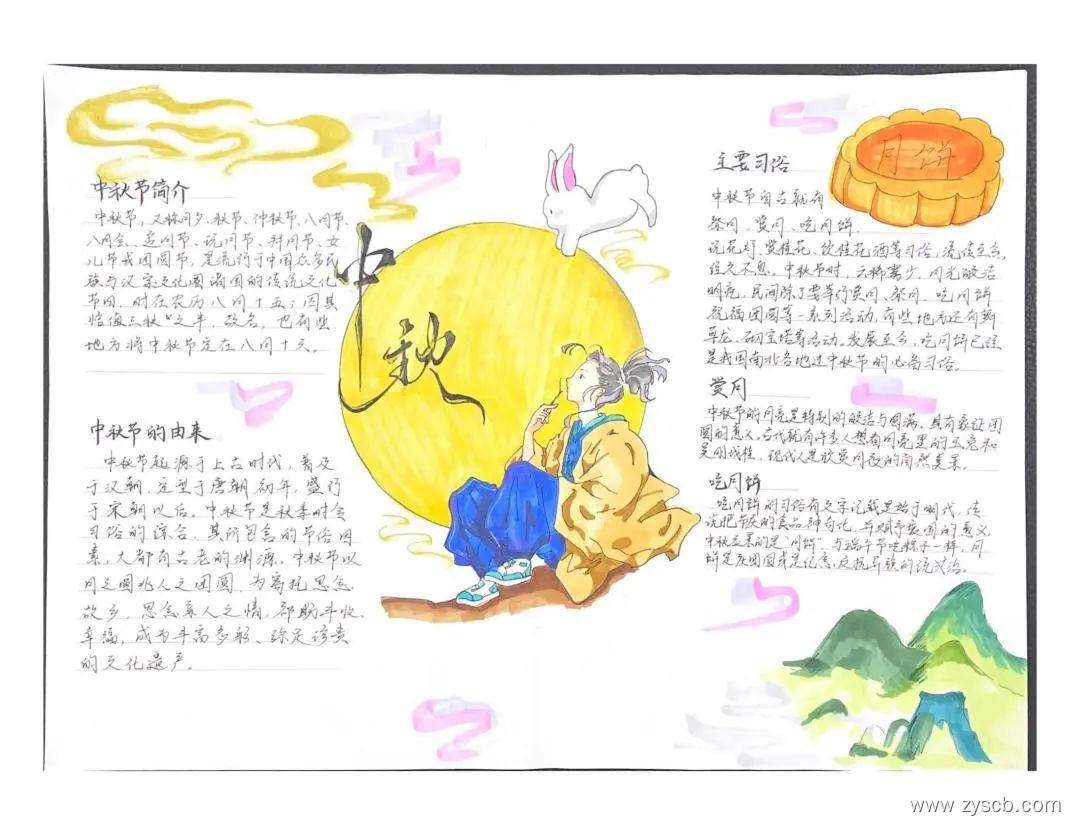 中秋节简介
中秋节，又称月夕、秋节、仲秋节、八月节、
八月会、追月节、玩月节、拜月节、女
儿节或团圆节，是流行于中国众多民
族与汉字文化圈诸国的传统文化
节日，时在农历八月十五；因其
恰值三秋之半，故名，也有些
地方将中秋节定在八月十六。
中秋节的由来
中秋节起源于上古时代，普及
于汉朝，定型于唐朝初年，盛行
于宋朝以后。中秋节是秋季时令
习俗的综合，其所包含的节俗因
素，大都有古老的渊源。中秋节以
月之圆兆人之团圆，为寄托思念
故乡，思念亲人之情，祈盼丰收、
幸福，成为丰富多彩、弥足珍贵
的文化遗产。
中秋
月饼
主要习俗
中秋节自古就有
祭月、赏月、吃月饼、
玩花灯、赏桂花、饮桂花酒等习俗，流传至今，
经久不息。中秋节时，云稀雾少，月光皎洁
明亮，民间除了要举行赏月、祭月、吃月饼
祝福团圆等一系列活动，有些地方还有舞
草龙、砌宝塔等活动。发展至今，吃月饼已经
是我国南北各地过中秋节的必备习俗。
赏月
中秋节的月亮是特别的皎洁与圆满，具有象征团
圆的意义，古代就有许多人想有月亮里的玉兔和
吴刚伐桂，现代人是欣赏月夜的自然美景。
吃月饼
吃月饼的习俗有文字记载是始于明代，传
说把节庆的食品神话化，并赋予爱国的意义
中秋应景的是“月饼”，与端午节吃粽子一样，月
饼是庆团圆或是纪念反抗异族的统治。
www.zyscb.com